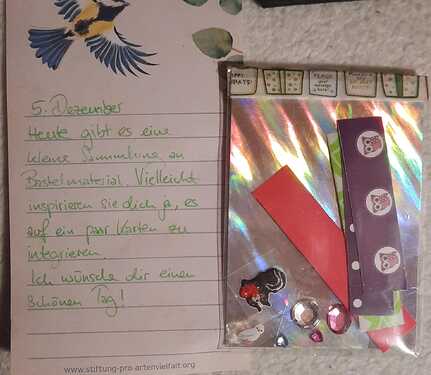 5. Dezember
Heute gibt es eine
kleine Sammlung an
Bastelmaterial. Vielleicht
inspirieren sie dich ja, es
auf ein paar Karten zu
integrieren.
Ich wünsche dir einen
schönen Tag!
www.stiftung-pro-artenvielfalt.org